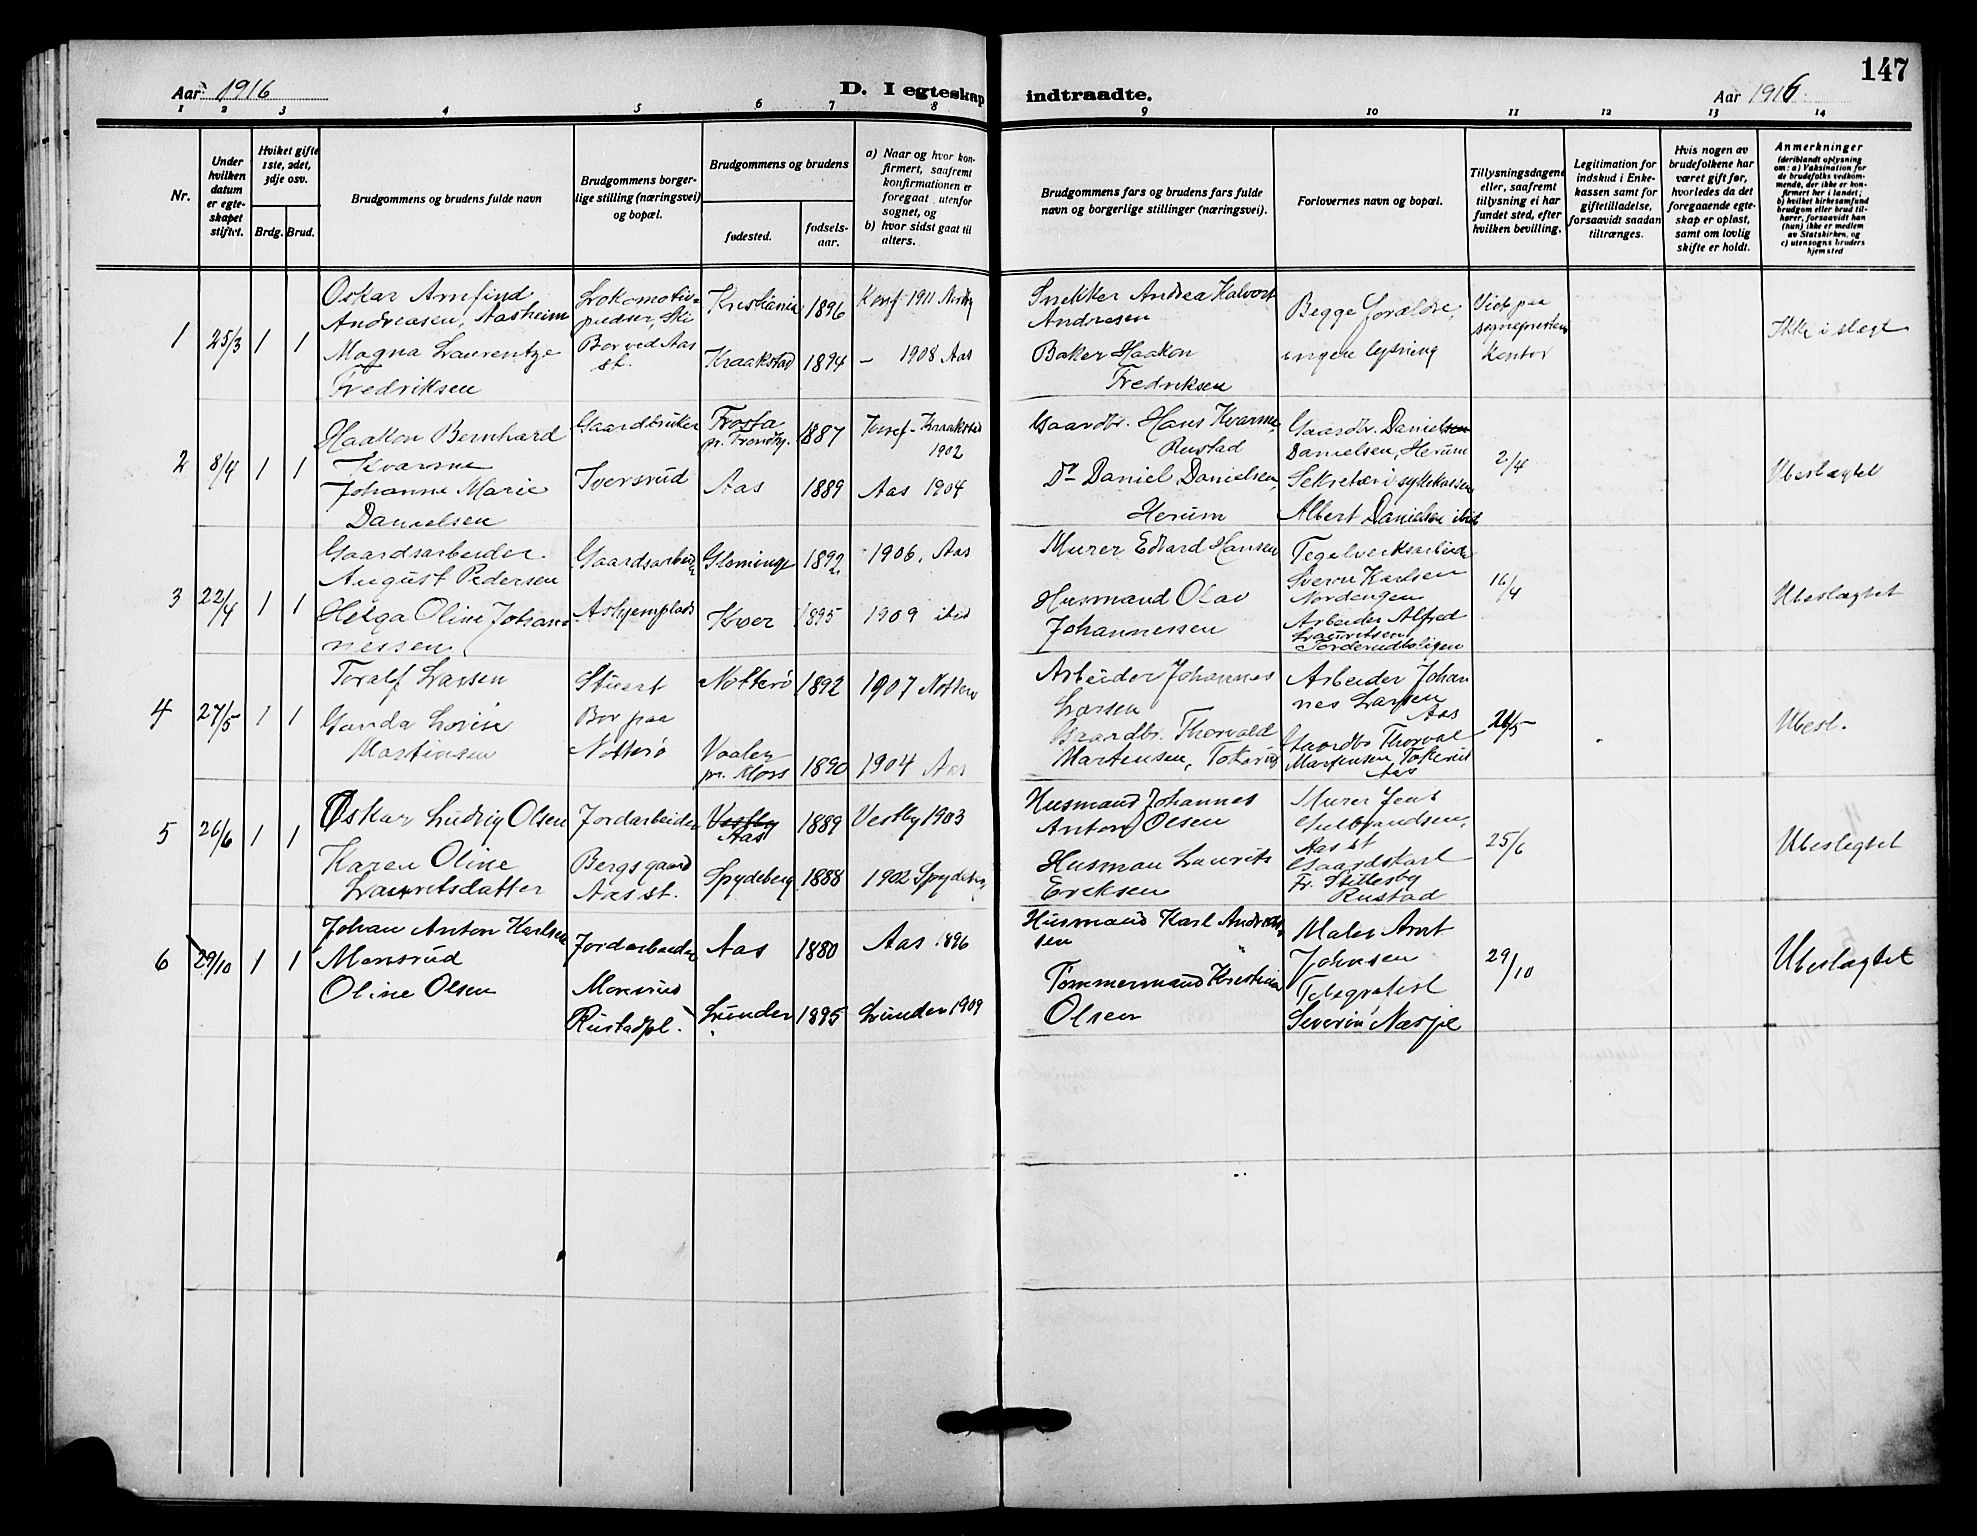 147
Aar 1916
D. I egteskap indtraadte.
Aar 1916
1 2 3 4 5 6 7 8 9 10 11 12 13 14
Nr.
Under
hvilken
datum
er egte-
skapet
stiftet.
Hvilket gifte
1ste, 2det,
3dje osv.
Brdg. Brud.
Brudgommens og brudens fulde navn
Brudgommens borger-
lige stilling (næringsvei)
og bopæl.
Brudgommens og brudens
fødested.
fødsels-
aar.
a) Naar og hvor kon-
firmert, saafremt
konfirmationen er
foregaat utenfor
sognet, og
b) hvor sidst gaat til
alters.
Brudgommens fars og brudens fars fulde
navn og borgerlige stillinger (næringsvei).
Forlovernes navn og bopæl.
Tillysningsdagene
eller, saafremt
tillysning ei har
fundet sted, efter
hvilken bevilling.
Legitimation for
indskud i Enke-
kassen samt for
giftetilladelse,
forsaavidt saadan
tiltrænges.
Hvis nogen av
brudefolkene har
været gift før,
hvorledes da det
foregaaende egte-
skap er opløst,
samt om lovlig
skifte er holdt.
Anmerkninger
(deriblandt oplysning
om: a) Vaksination for
de brudefolks vedkom-
mende, der ikke er kon-
firmert her i landet;
b) hvilket kirkesamfund
brudgom eller brud til-
hører, forsaavidt han
(hun) ikke er medlem
av Statskirken, og
c) utensogns bruders
hjemsted
1 25/3 1 1
Oskar Arnfind
Andreasen, Aasheim
Magna Laurentze
Fredriksen
Lokomotiv-
pudser, Ski
Bor ved Aas
st.
Kristiania 1896 Konf 1911
Kraakstad 1894 - 1908 Aas
Snekker Andrea Halvors
Andresen
Baker Haakon
Fredriksen
Begge forældre,
ingen lysning
Viet paa
sogneprestens
kontor
Ikke i slegt
2 8/4 1 1
Haakon Bernhard
Kvarme
Johanne Marie
Danielsen
Gaardbruker
Iversrud
Frosta
pr. Trondhj. 1887 Konf - Kraakstad
1902
Aas 1889 Aas 1904
Gaardbr. Hans Kvarme,
Rustad
Do Daniel Danielsen,
Herum
Gaardbr. Daniel
Danielsen, Herum
Sekretær i sykekassen
Albert Danielsen ibid
2/4
Ubeslægtet
3 22/4 1 1
Gaardsarbeider
August Pedersen
Helga Oline Johan-
nessen
Gaardsarbeider
Askjemplads
Glemminge 1892 1906, Aas
Kroer 1895 1909 ibid
Murer Edvard Hansen
Husmand Olav
Johannessen
Tegelverksarbeider
Sverre Karlsen
Nordengen
Arbeider Alfred
Lauritsen
Torderudboligen
16/4
Ubeslægtet
4 27/5 1 1
Toralf Larsen
Ganda Lovise
Martinsen
Stuert
Bor paa
Nøtterø
Nøtterø 1892 1907 Nøtterø
Vaaler
pr. Moss 1890 1904 Aas
Arbeider Johannes
Larsen
Gaardbr. Thorvald
Martensen, Tokerud
Arbeider Johan
nes Larsen
Aas
Gaardbr Thorval
Martensen, Tokerud
Aas
21/5
Ubesl.
5 26/6 1 1
Oskar Ludvig Olsen
Karen Oline
Lauritsdatter
Jordarbeider
Bergsgaard
Aas st.
Vestby
Aas 1889 Vestby 1903
Spydeberg 1888 1902 Spydeberg
Husmand Johannes
Anton Olsen
Husman Laurits
Ericksen
Murer Jens
Gulbrandsen,
Aas st
Gaardskarl
Fr. Stillesby
Rustad
25/6
Ubeslegtet
6 29/10 1 1
Johan Anton Karlsen
Mensrud
Oline Olsen
Jordarbeider
Morsrud
Rustadpl.
Aas 1880 Aas 1896
Lunder 1895 Lunder 1909
Husmand Karl Andrea-
sen
Tømmermand Kristian
Olsen
Maler Arnt
Johnsen
Telegrafist
Severin Næsje
29/10
Ubeslægtet